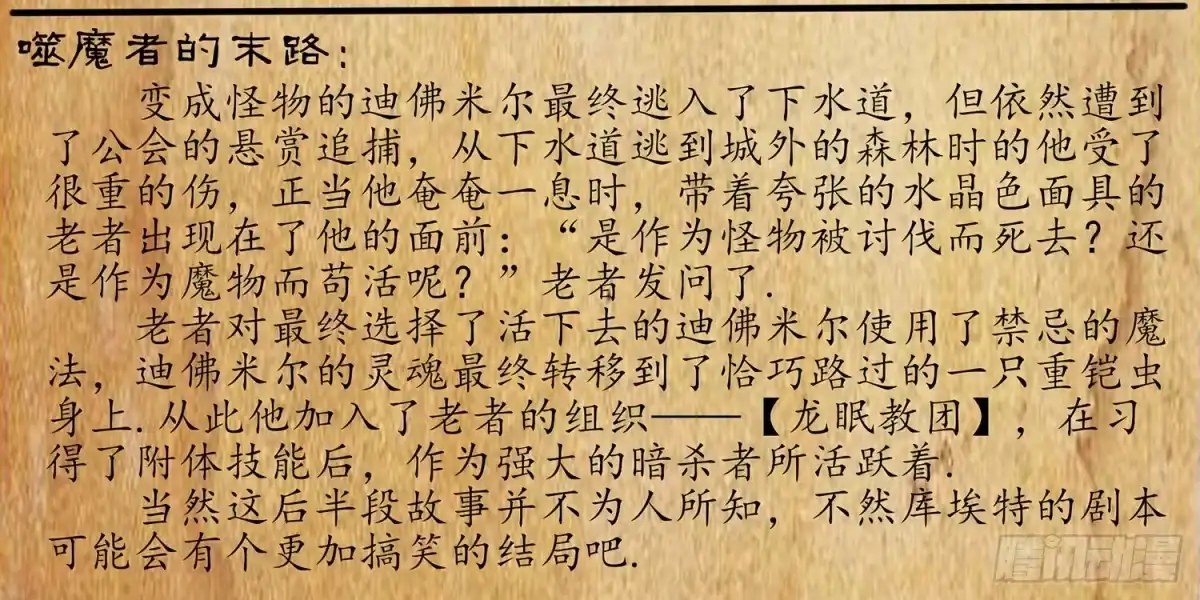 噬魔者的末路：
变成怪物的迪佛米尔最终逃入了下水道，但依然遭到
了公会的悬赏追捕，从下水道逃到城外的森林时的他受了
很重的伤，正当他奄奄一息时，带着夸张的水晶色面具的
老者出现在了他的面前：“是作为怪物被讨伐而死去？还
是作为魔物而苟活呢？”老者发问了.
老者对最终选择了活下去的迪佛米尔使用了禁忌的魔
法，迪佛米尔的灵魂最终转移到了恰巧路过的一只重铠虫
身上.从此他加入了老者的组织——【龙眠教团】，在习
得了附体技能后，作为强大的暗杀者所活跃着.
当然这后半段故事并不为人所知，不然库埃特的剧本
可能会有个更加搞笑的结局吧.
腾讯动漫